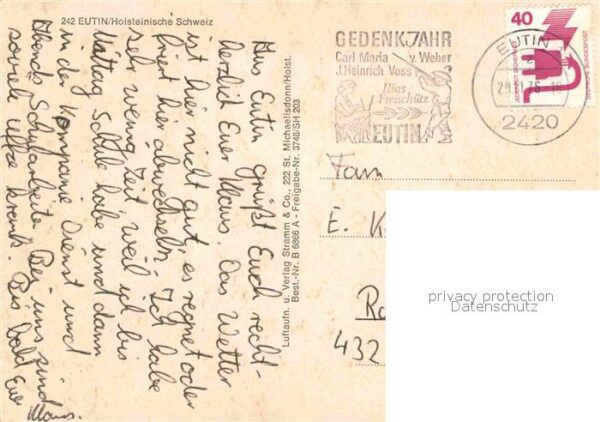 242 EUTIN/Holsteinische Schweiz
Aus Eutin grüßt Euch recht-
herzlich Euer Klaus. Das Wetter
ist hier nicht gut, es regnet oder
friert hier abwechseln. Ich habe
sehr wenig Zeit weil ich bis
Mittag Schule habe und dann
in der Kompanie Dienst und
Abends Schularbeiten. Bei uns sind
soviele krank. Bis bald Euer
Klaus.
Luftaufn. u. Verlag Stramm & Co., 222 St. Michaelisdonn/Holst.
Best.-Nr. B 6866 A - Freigabe-Nr. 3748/SH 203
GEDENKJAHR
Carl Maria v. Weber
J. Heinrich Voss
Ilias
Freischütz
EUTIN
EUTIN
76
2420
40
JEDERZEIT SICHERHEIT
DEUTSCHE BUNDESPOST
Fam
E. K
R
432
privacy protection
Datenschutz